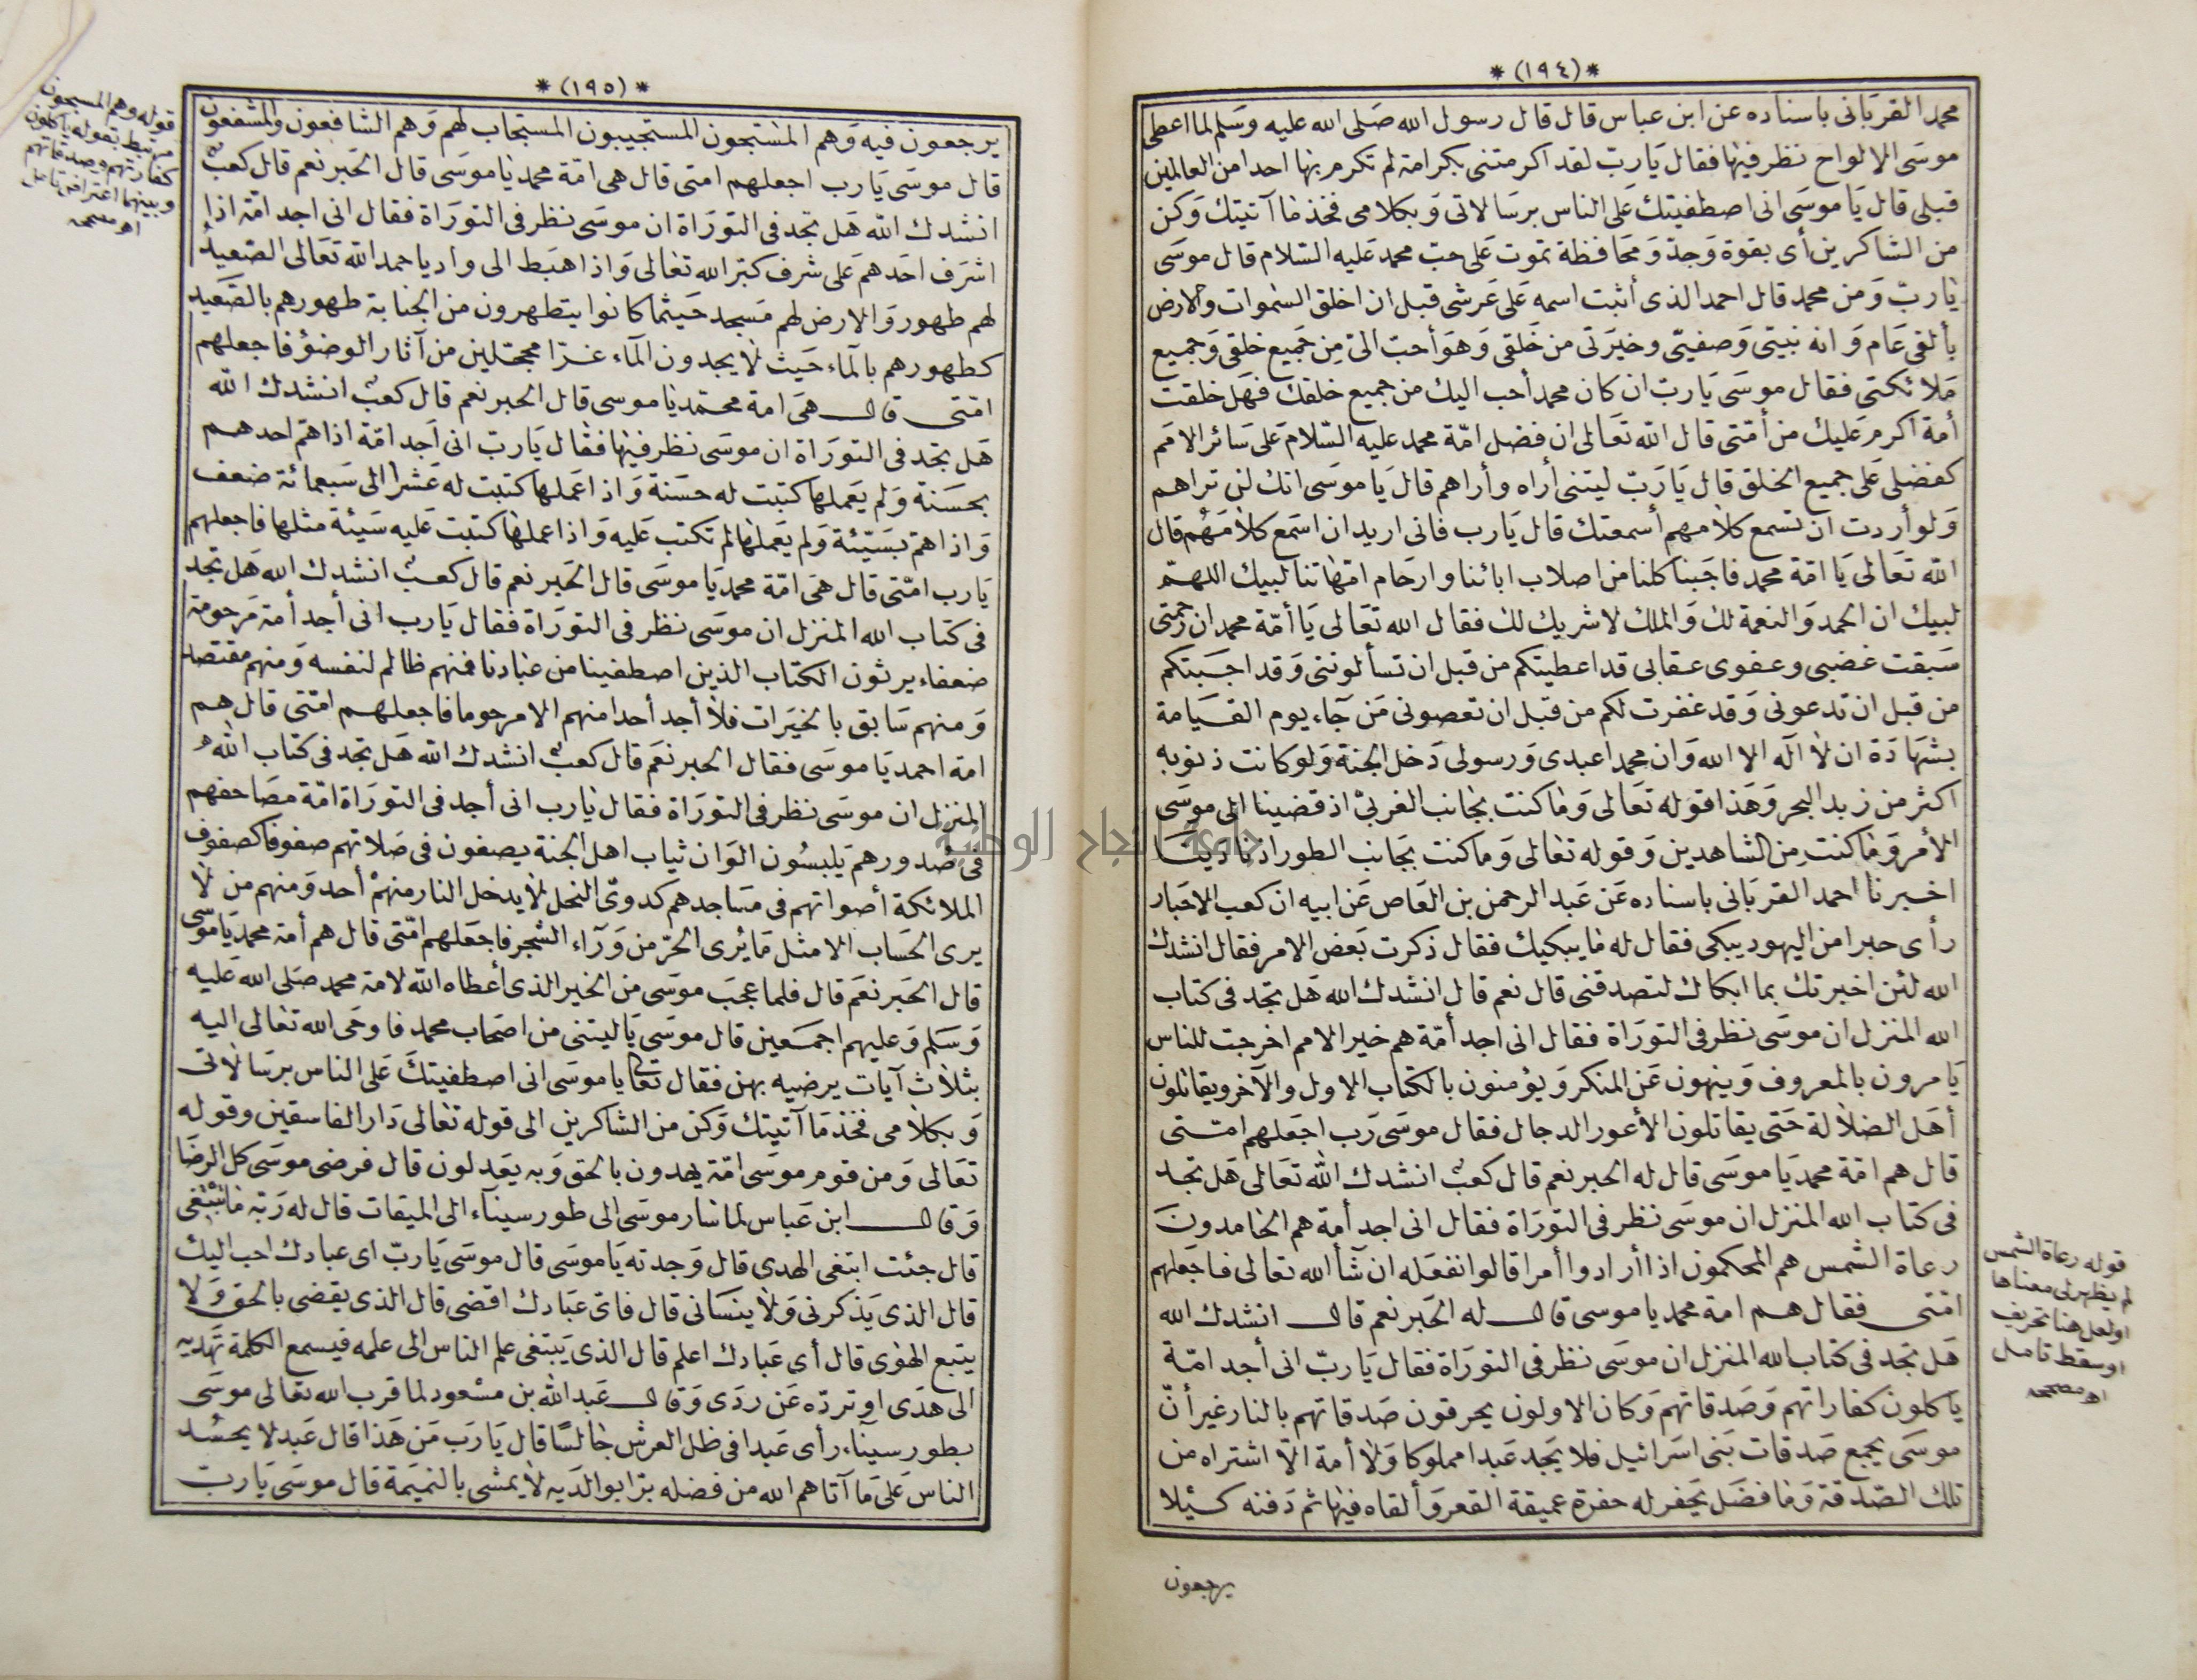 *(١٩٤)*
محمد القربانى باسناده عن ابن عباس قال قال رسول الله صَلى الله عليه وسَلم لما اعطى
موسَى الالواح نظر فيها فقال يَارب لقد اكرمتنى بكرامة لم تكرم بها احدا من العالمين
قبلى قال يَا موسَى انى اصطفيتك عَلى الناس برسَالاتى وَبكلامى فخذ مَا آتيتك وَكن
من الشاكرين أى بقوة وَجدّ وَمحَافظة تموت عَلى حبّ محمد عَليه السّلام قال موسَى
يَاربّ وَمن محمد قال احمد الذى أثبت اسمه عَلى عَرشى قبل ان اخلق السّموات والارض
بألفى عَام وَانه نبيّى وَصفيّى وخيَرتى من خَلقى وَهوَ أحبّ الىّ مِن جَميع خلقى وَجميع
مَلائكتى فقال موسَى يَاربّ ان كان محمد أحب اليك من جميع خلقك فهَل خلقت
أمة أكرم عَليك من أمّتى قال الله تعَالى ان فضل امّة محمد عليه السّلام عَلى سَائر الامَم
كفضلى عَلى جميع الخلق قال يَا رَبّ ليتنى أراه وأراهم قال يَا موسَى انك لن تراهم
وَلو أردت ان تسمع كلامهم أسمعتك قال يَارب فانى اريد ان اسَمع كلامَهُم قال
الله تعَالى يَا امّة محمد فاجَبنا كلنا من اصلاب ابائنا وارحَام امّهاتنا لبيك اللهمّ
لبيك ان الحمد وَالنعمة لك وَالملك لاشريك لك فقال الله تعَالى يَا أمّة محمد ان رَحمتى
سَبقت غضبى وعفوى عقابى قد اعطيتكم من قبل ان تسألوننى وَقد اجَبتكم
من قبل ان تدعونى وَقد غفرت لكم من قبل ان تعصونى مَن جَاء يوم القيَامة
بشهَادَة ان لا اله الا الله وَان محمدا عبدى وَرسولى دَخل الجنة وَلو كانت ذنوبه
اكثر من زبد البحر وَهَذا قوله تعَالى وَمَا كنت بجانب الغربىّ اذ قضينا الى موسَى
الأمر وَمَا كنت من الشاهدين وَقوله تعَالى وَمَا كنت بجَانب الطور اذ نادَينَا
اخبرنا احمد القربَانى باسناده عَن عَبد الرحمن بن العَاص عَن ابيه ان كعب الاحَبار
رأى حبرا من اليهود يبكى فقال له مَا يبكيك فقال ذكرت بَعض الامر فقال انشدك
الله لئن اخبرتك بما ابكاك لتصدقنى قال نعم قال انشدك الله هَل تجَد فى كتاب
الله المنزل ان موسَى نظر فى التورَاة فقال انى اجد أمّة هم خير الامم اخرجت للناس
يَامرون بالمعروف وَينهون عَن المنكر وَيؤمنون بالكتاب الاول والآخر ويقاتلون
أهَل الضلالة حَتى يقاتلون الأعور الدجال فقال موسَى رَب اجعَلهم امتى
قال هم امّة محمد يَا موسَى قال له الحبر نعم قال كعبٌ انشدك الله تعَالى هَل تجد
فى كتاب الله المنزل ان موسَى نظر فى التورَاة فقال انى اجد أمة هم الحَامدونَ
رعاة الشمس هم المحكمون اذا أرادوا أمرا قالوا نفعَله ان شَآ الله تعَالى فاجعَلهم
امّتى فقال هم امة محمد يا موسى قال له الحَبر نعم قال انشدك الله
هَل تجَد فى كتاب الله المنزل ان موسَى نظر فى التورَاة فقال يَاربّ انى أجد امّة
يَاكلون كفاراتهم وَصَدقاتهم وَكان الاولون يحرقون صَدقاتهم بالنار غير أنّ
موسَى يجمع صَدقات بَنى اسرَائيل فلا يَجد عَبدا مملوكا وَلا أمة الاّ اشتراه من
تلك الصّدقة وَمَا فضَل يَحفر له حفرة عميقة القعر وَألقاه فيها ثم دَفنه كيلا
يرجعون
قوله رعاة الشمس
لم يظهر لى معناها
اولعل هنا تحريف
اوسقط تامل
اه مصححه
*(١٩٥)*
يرجعون فيه وَهم المستجيبون المستجاب لهم وَهم الشافعون والمشفعون
قال موسَى يَارب اجعلهم امتى قال هى امّة محمد يا موسَى قال الحَبر نعم قال كعبٌ
انشدك الله هَل تجد فى التورَاة ان موسَى نظر فى التورَاة فقال انى اجد امّة اذا
اشرَف احَدهم عَلى شرف كبّر الله تعالى وَاذا هبَط الى واديا حمد الله تعَالى الصّعيدُ
لهم طهور وَالارض لهم مَسجد حَيثما كانوا يتطهرون من الجنابة طهورهم بالصَّعيد
كطهورهم بالمآء حَيث لا يجدون المآء غرّا محجّلين من آثار الوضوء فاجعلهم
امّتى قال هىَ امة محمّد يا موسى قال الحبر نعم قال كعبٌ انشدك الله
هَل تجد فى التورَاة ان موسَى نظر فيها فقال يَاربّ انى أجد امّة اذا همّ احدهم
بحسَنة وَلم يَعملها كتبت له حسَنة وَاذا عَملها كتبت له عَشرا الى سَبعمائة ضعف
وَاذا همّ بسَيّئة وَلم يَعملها لم تكتب عَليه وَاذا عملها كتبت عَليه سَيئة مثلها فاجعلهم
يَارب امّتى قال هىَ امّة محمد يَا موسَى قال الحَبر نعم قال كعبٌ انشدك الله هَل تجد
فى كتاب الله المنزل ان موسَى نظر فى التورَاة فقال يَارب انى أجد أمة مَرحومة
ضعفاء يرثون الكتاب الذين اصطفينا من عبَادنا فمنهم ظالم لنفسه وَمنهم مقتصد
وَمنهم سَابق بالخيَرات فلا أجد أحدا منهم الا مرحوما فاجعلهم امّتى قال هم
امة احمد يَا موسَى فقال الحبر نعَم قال كعبٌ انشدك الله هَل تجد فى كتاب الله
المنزل ان موسَى نظر فى التورَاة فقال يارب انى أجد فى التورَاة امّة مصَاحفهم
فى صُدورهم يَلبسُون الوَان ثياب اهل الجنة يصفون فى صَلاتهم صفوفا كصفوف
الملائكة أصواتهم فى مسَاجدهم كدوىّ النحل لا يدخل النار منهمْ أحد وَمنهم من لا
يرى الحسَاب الا مثل مَا يُرى الحرّ من وَرَآء الشجر فاجعَلهم امّتى قال هم أمة محمد يَا موسى
قال الحَبر نعَم قال فلما عجبَ موسَى من الخير الذى أعطاه الله لامة محمد صَلى الله عَليه
وَسَلم وَعليهم اجمَعين قال موسَى يَا ليتنى من اصحَاب محمد فاوحَى الله تعالى اليه
بثلاث آيات يرضيه بهن فقال تعالى يا موسَى انى اصطفيتكَ عَلى الناس برسَالاتى
وَبكلامى فخذ مَا آتيتك وَكن من الشاكرين الى قوله تعَالى دَار الفاسقين وقوله
تعَالى وَمن قوم موسَى امّة يهدون بالحق وَبه يعَدلون قال فرضى موسَى كل الرضَا
وَقال ابن عَباس لما سَار موسَى الى طور سيناء الى الميقات قال له رَبّه مَا تبتغى
قال جئت ابتغى الهدى قال وَجدته يَا موسَى قال موسَى يَاربّ اى عبادك احب اليك
قال الذى يَذكرنى وَلا ينسَانى قال فاىّ عبَادك اقضى قال الذى يقضى بالحق وَلا
يتبع الهوى قال أى عبَادك اعلم قال الذى يَبتغى علم الناس الى علمه فيسمع الكلمة تهَديه
الى هدَى او تردّه عَن ردَى وَقال عَبد الله بن مسْعود لما قرب الله تعَالى موسَى
بطور سينَاء رأى عَبدا فى ظل العرش جَالسًا قال يَارَب مَن هَذا قال عَبد لا يحسُد
الناس عَلى مَا آتاهم الله من فضله برّا بوالدَيه لا يمشى بالنميَمة قال موسَى يَاربّ
قوله وهم المسبحون
مرتبط بقوله ياكلون
كفارتهم وصدقاتهم
وبينهما اعتراض تامل
اه مصححه
جامعة النجاح الوطنية